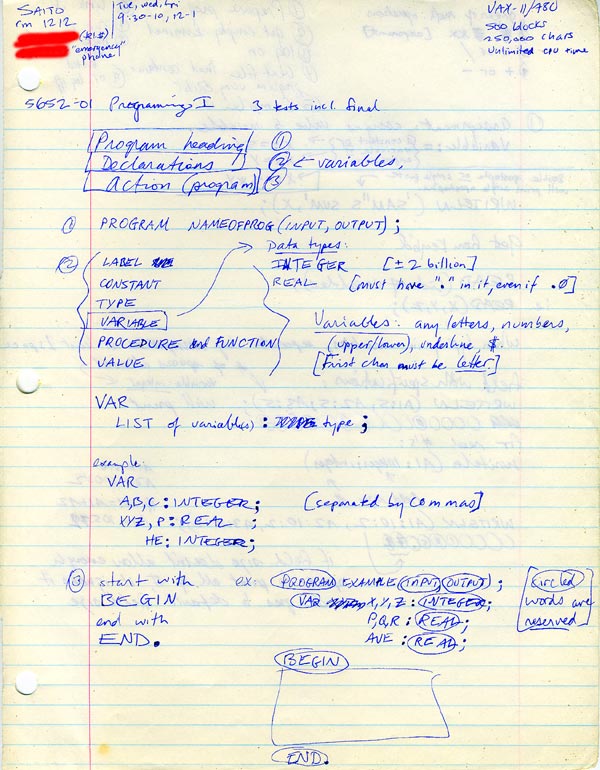 SAITO
rm 1212
Tue, wed, fri
9:30-10, 12-1
"emergency"
phone
VAX-11/780
500 blocks
250,000 chars
Unlimited cpu time
5652-01 Programming I 3 tests incl. final
Program heading ①
Declarations ② ← variables,
Action (program) ③
① PROGRAM NAMEOFPROG (INPUT, OUTPUT);
Data types:
② LABEL INTEGER [± 2 billion]
CONSTANT REAL [must have "." in it, even if .0]
TYPE
VARIABLE Variables: any letters, numbers,
PROCEDURE and FUNCTION (upper/lower), underline, $.
VALUE [First char must be letter]
VAR
LIST of variable(s) : type ;
example:
VAR
A,B,C : INTEGER; [separated by commas]
XYZ, P : REAL ;
HE : INTEGER;
③ start with ex. PROGRAM EXAMPLE (INPUT, OUTPUT) ; [circled
BEGIN VAR X,Y,Z : INTEGER; words are
end with P,Q,R : REAL; reserved]
END. AVE : REAL;
BEGIN
END.